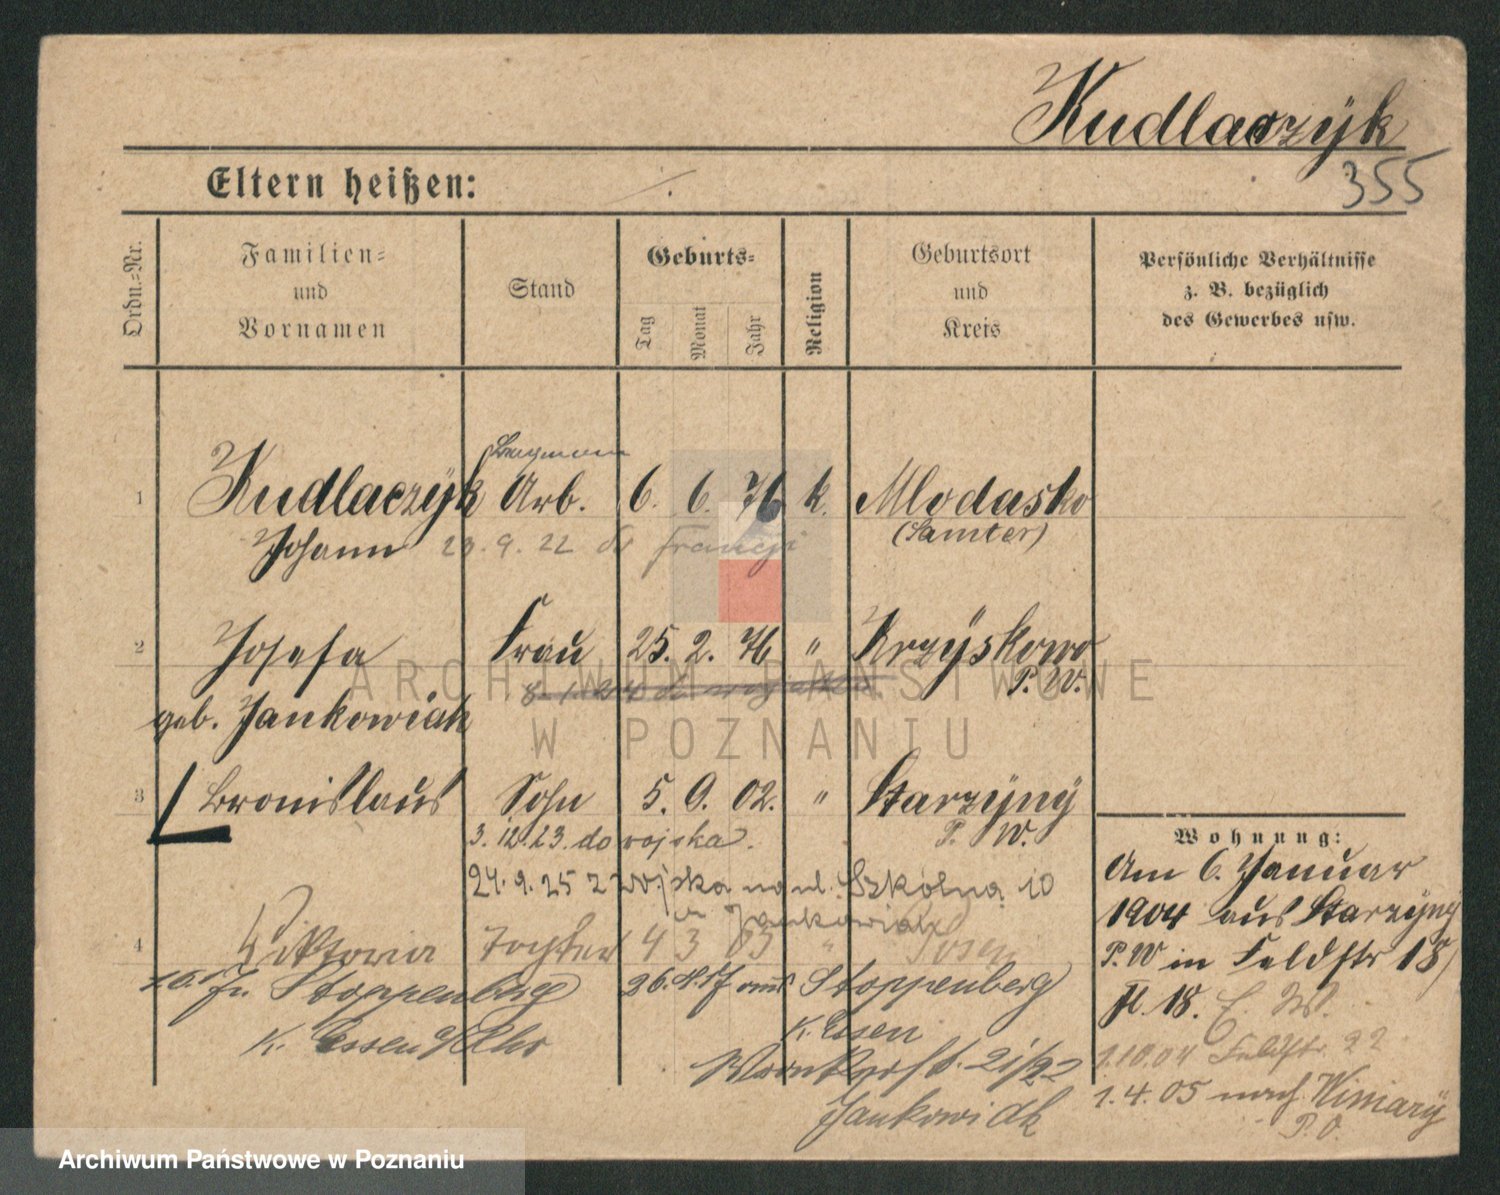 Kudlaczÿk
355
Eltern heißen: ./.
Ordn.-Nr.
Familien-
und
Vornamen
Stand
Geburts-
Tag
Monat
Jahr
Religion
Geburtsort
und
Kreis
Persönliche Verhältnisse
z. B. bezüglich
des Gewerbes usw.
Bergmann
1 Kudlaczÿk Arb. 6. 6. 76 k. Mlodasko
Johann (Samter)
23.9.22 do Francji
2 Josefa Frau 25. 2. 76 " Krzÿskowo
P. W.
geb. Jankowiak
3 Bronislaus Sohn 5. 9. 02. " Starzÿnÿ
P. W.
3.12.23. do wojska.
24.9.25 z wojska na ul. Szkolna 10
u Jankowiak
4 Viktoria Tochter 4 3 03 " Posen
In Stoppenberg
K. Essen a/Ruhr
26. 17 aus Stoppenberg
K. Essen
21/22
Jankowiak
Wohnung:
Am 6. Januar
1904 aus Starzÿnÿ
P. W in Feldstr 18/
Fl. 18. E. W.
1.10.04 Feldstr. 22
1.4.05 nach Winiarÿ
P. O.
ARCHIWUM PAŃSTWOWE
W POZNANIU
Archiwum Państwowe w Poznaniu